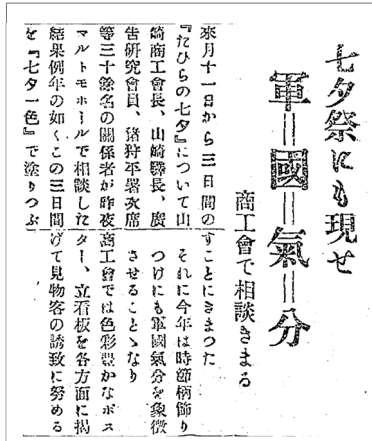 七夕祭にも現せ
軍=國=氣=分
商工會で相談きまる
來月十一日から三日間の
『たひらの七夕』について山
崎商工會長、山崎驛長、廣
告研究會員、猪狩平署次席
等三十餘名の關係者が昨夜
マルトモホールで相談した
結果例年の如くこの三日間
を『七夕一色』で塗りつぶ
すことにきまつた
それに今年は時節柄飾り
つけにも軍國氣分を象徴
させることゝなり
商工會では色彩豊かなポス
ター、立看板を各方面に揭
げて見物客の誘致に努める